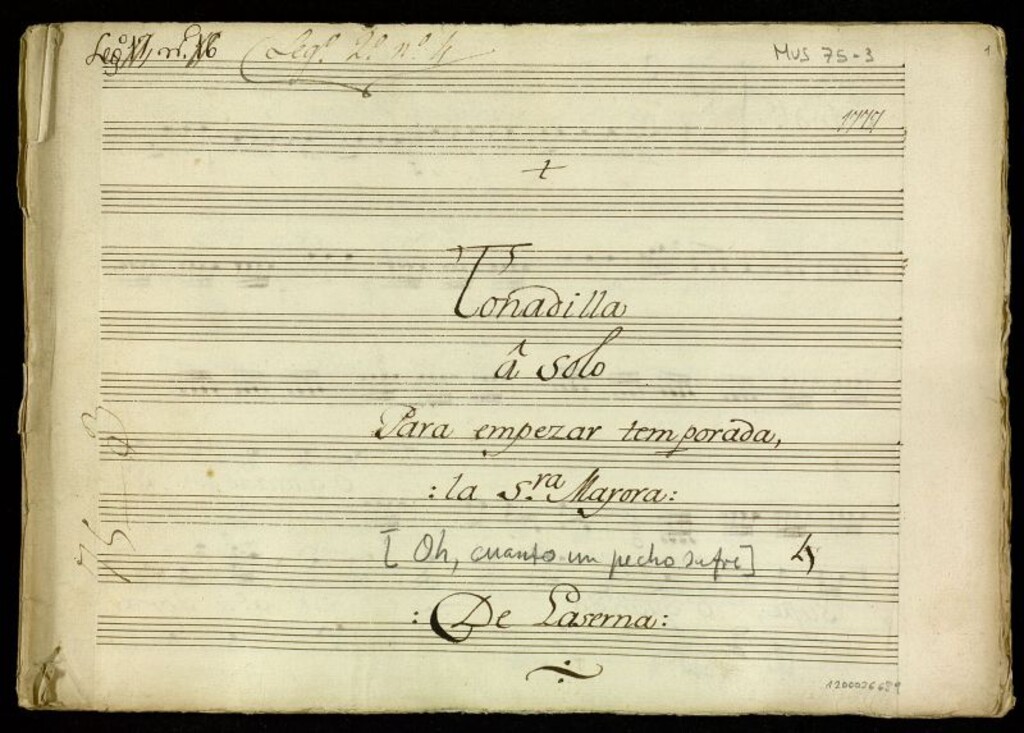 Leg.º 2.º n.º 4
MUS 75-3
1
Tonadilla
â solo
Para empezar temporada,
: la S.ra Mayora:
[Oh, cuanto un pecho sufre] 4
: De Laserna:
75-3
1200026689